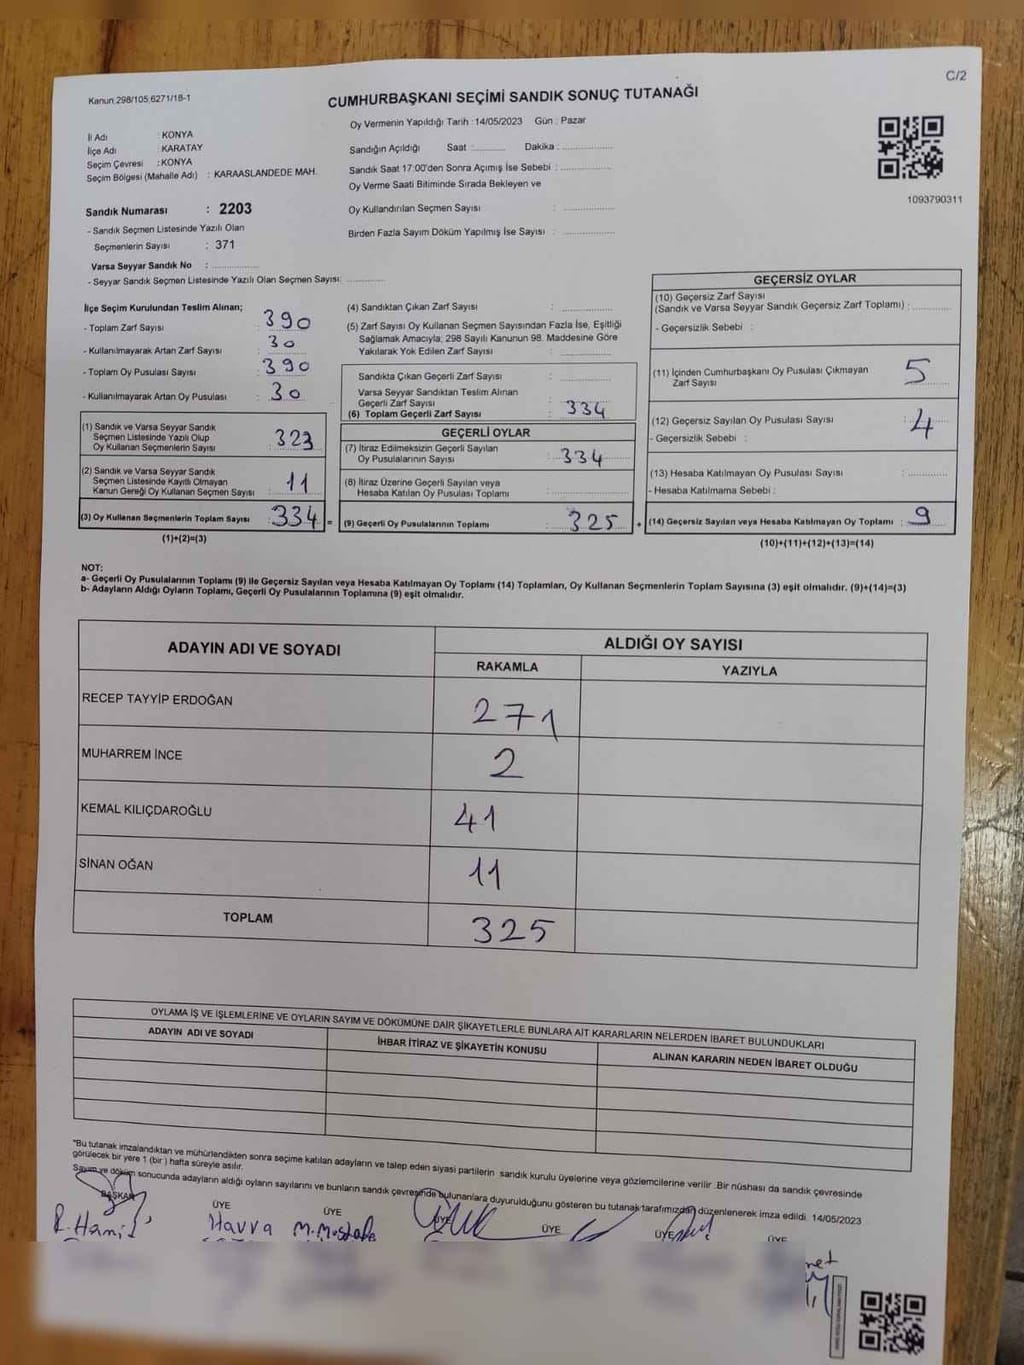 C/2
Kanun:298/105;6271/18-1
CUMHURBAŞKANI SEÇİMİ SANDIK SONUÇ TUTANAĞI
Oy Vermenin Yapıldığı Tarih :14/05/2023 Gün : Pazar
İl Adı : KONYA
İlçe Adı : KARATAY
Seçim Çevresi : KONYA
Seçim Bölgesi (Mahalle Adı) : KARAASLANDEDE MAH.
Sandık Numarası : 2203
- Sandık Seçmen Listesinde Yazılı Olan
Seçmenlerin Sayısı : 371
Varsa Seyyar Sandık No : ..............
- Seyyar Sandık Seçmen Listesinde Yazılı Olan Seçmen Sayısı: ............
Sandığın Açıldığı Saat :........... Dakika :................
Sandık Saat 17:00'den Sonra Açımış İse Sebebi : ................
Oy Verme Saati Bitiminde Sırada Bekleyen ve
Oy Kullandırılan Seçmen Sayısı : ................
Birden Fazla Sayım Döküm Yapılmış İse Sayısı : ................
1093790311
İlçe Seçim Kurulundan Teslim Alınan;
- Toplam Zarf Sayısı : 390
- Kullanılmayarak Artan Zarf Sayısı : 30
- Toplam Oy Pusulası Sayısı : 390
- Kullanılmayarak Artan Oy Pusulası : 30
(1) Sandık ve Varsa Seyyar Sandık
Seçmen Listesinde Yazılı Olup
Oy Kullanan Seçmenlerin Sayısı : 323
(2) Sandık ve Varsa Seyyar Sandık
Seçmen Listesinde Kayıtlı Olmayan
Kanun Gereği Oy Kullanan Seçmen Sayısı : 11
(3) Oy Kullanan Seçmenlerin Toplam Sayısı : 334 =
(1)+(2)=(3)
(4) Sandıktan Çıkan Zarf Sayısı : ................
(5) Zarf Sayısı Oy Kullanan Seçmen Sayısından Fazla İse, Eşitliği
Sağlamak Amacıyla; 298 Sayılı Kanunun 98. Maddesine Göre
Yakılarak Yok Edilen Zarf Sayısı : ................
Sandıkta Çıkan Geçerli Zarf Sayısı : ................
Varsa Seyyar Sandıktan Teslim Alınan
Geçerli Zarf Sayısı : ................
(6) Toplam Geçerli Zarf Sayısı : 334
GEÇERLİ OYLAR
(7) İtiraz Edilmeksizin Geçerli Sayılan
Oy Pusulalarının Sayısı : 334
(8) İtiraz Üzerine Geçerli Sayılan veya
Hesaba Katılan Oy Pusulası Toplamı : ................
(9) Geçerli Oy Pusulalarının Toplamı : 325 +
GEÇERSİZ OYLAR
(10) Geçersiz Zarf Sayısı
(Sandık ve Varsa Seyyar Sandık Geçersiz Zarf Toplamı) : ............
- Geçersizlik Sebebi :
(11) İçinden Cumhurbaşkanı Oy Pusulası Çıkmayan
Zarf Sayısı : 5
(12) Geçersiz Sayılan Oy Pusulası Sayısı : 4
- Geçersizlik Sebebi :
(13) Hesaba Katılmayan Oy Pusulası Sayısı : ............
- Hesaba Katılmama Sebebi :
(14) Geçersiz Sayılan veya Hesaba Katılmayan Oy Toplamı : 9
(10)+(11)+(12)+(13)=(14)
NOT:
a- Geçerli Oy Pusulalarının Toplamı (9) ile Geçersiz Sayılan veya Hesaba Katılmayan Oy Toplamı (14) Toplamları, Oy Kullanan Seçmenlerin Toplam Sayısına (3) eşit olmalıdır. (9)+(14)=(3)
b- Adayların Aldığı Oyların Toplamı, Geçerli Oy Pusulalarının Toplamına (9) eşit olmalıdır.
ADAYIN ADI VE SOYADI ALDIĞI OY SAYISI
RAKAMLA YAZIYLA
RECEP TAYYİP ERDOĞAN 271
MUHARREM İNCE 2
KEMAL KILIÇDAROĞLU 41
SİNAN OĞAN 11
TOPLAM 325
OYLAMA İŞ VE İŞLEMLERİNE VE OYLARIN SAYIM VE DÖKÜMÜNE DAİR ŞİKAYETLERLE BUNLARA AİT KARARLARIN NELERDEN İBARET BULUNDUKLARI
ADAYIN ADI VE SOYADI İHBAR İTİRAZ VE ŞİKAYETİN KONUSU ALINAN KARARIN NEDEN İBARET OLDUĞU
*Bu tutanak imzalandıktan ve mühürlendikten sonra seçime katılan adayların ve talep eden siyasi partilerin sandık kurulu üyelerine veya gözlemcilerine verilir .Bir nüshası da sandık çevresinde
görülecek bir yere 1 (bir ) hafta süreyle asılır.
Sayım ve döküm sonucunda adayların aldığı oyların sayılarını ve bunların sandık çevresinde bulunanlara duyurulduğunu gösteren bu tutanak tarafımızdan düzenlenerek imza edildi. 14/05/2023
BAŞKAN ÜYE ÜYE ÜYE ÜYE ÜYE ÜYE
R.Hamis Havva M.Mustafa